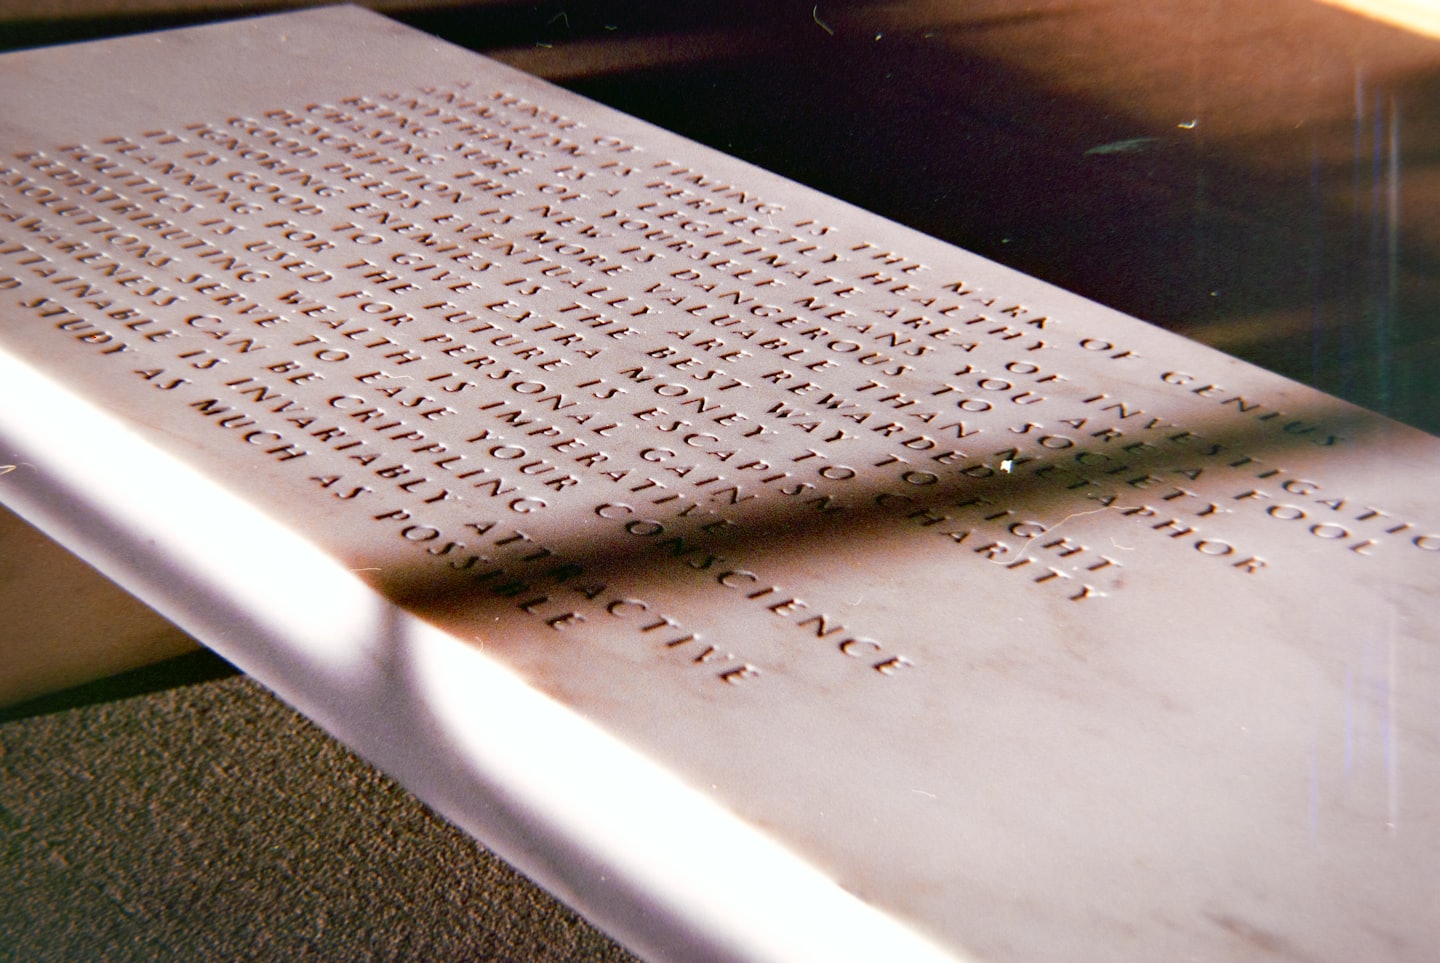 A SENSE OF TIMING IS THE MARK OF GENIUS
ANIMALISM IS PERFECTLY HEALTHY
ANYTHING IS A LEGITIMATE AREA OF INVESTIGATIO
BEING SURE OF YOURSELF MEANS YOU ARE A FOOL
CHASING THE NEW IS DANGEROUS TO SOCIETY
DESCRIPTION IS MORE VALUABLE THAN METAPHOR
GOOD DEEDS EVENTUALLY ARE REWARDED
IGNORING ENEMIES IS THE BEST WAY TO FIGHT
IT IS GOOD TO GIVE EXTRA MONEY TO CHARITY
PLANNING FOR THE FUTURE IS ESCAPISM
POLITICS IS USED FOR PERSONAL GAIN
REDISTRIBUTING WEALTH IS IMPERATIVE
SOLUTIONS SERVE TO EASE YOUR CONSCIENCE
AWARENESS CAN BE CRIPPLING
ATTAINABLE IS INVARIABLY ATTRACTIVE
D STUDY AS MUCH AS POSSIBLE